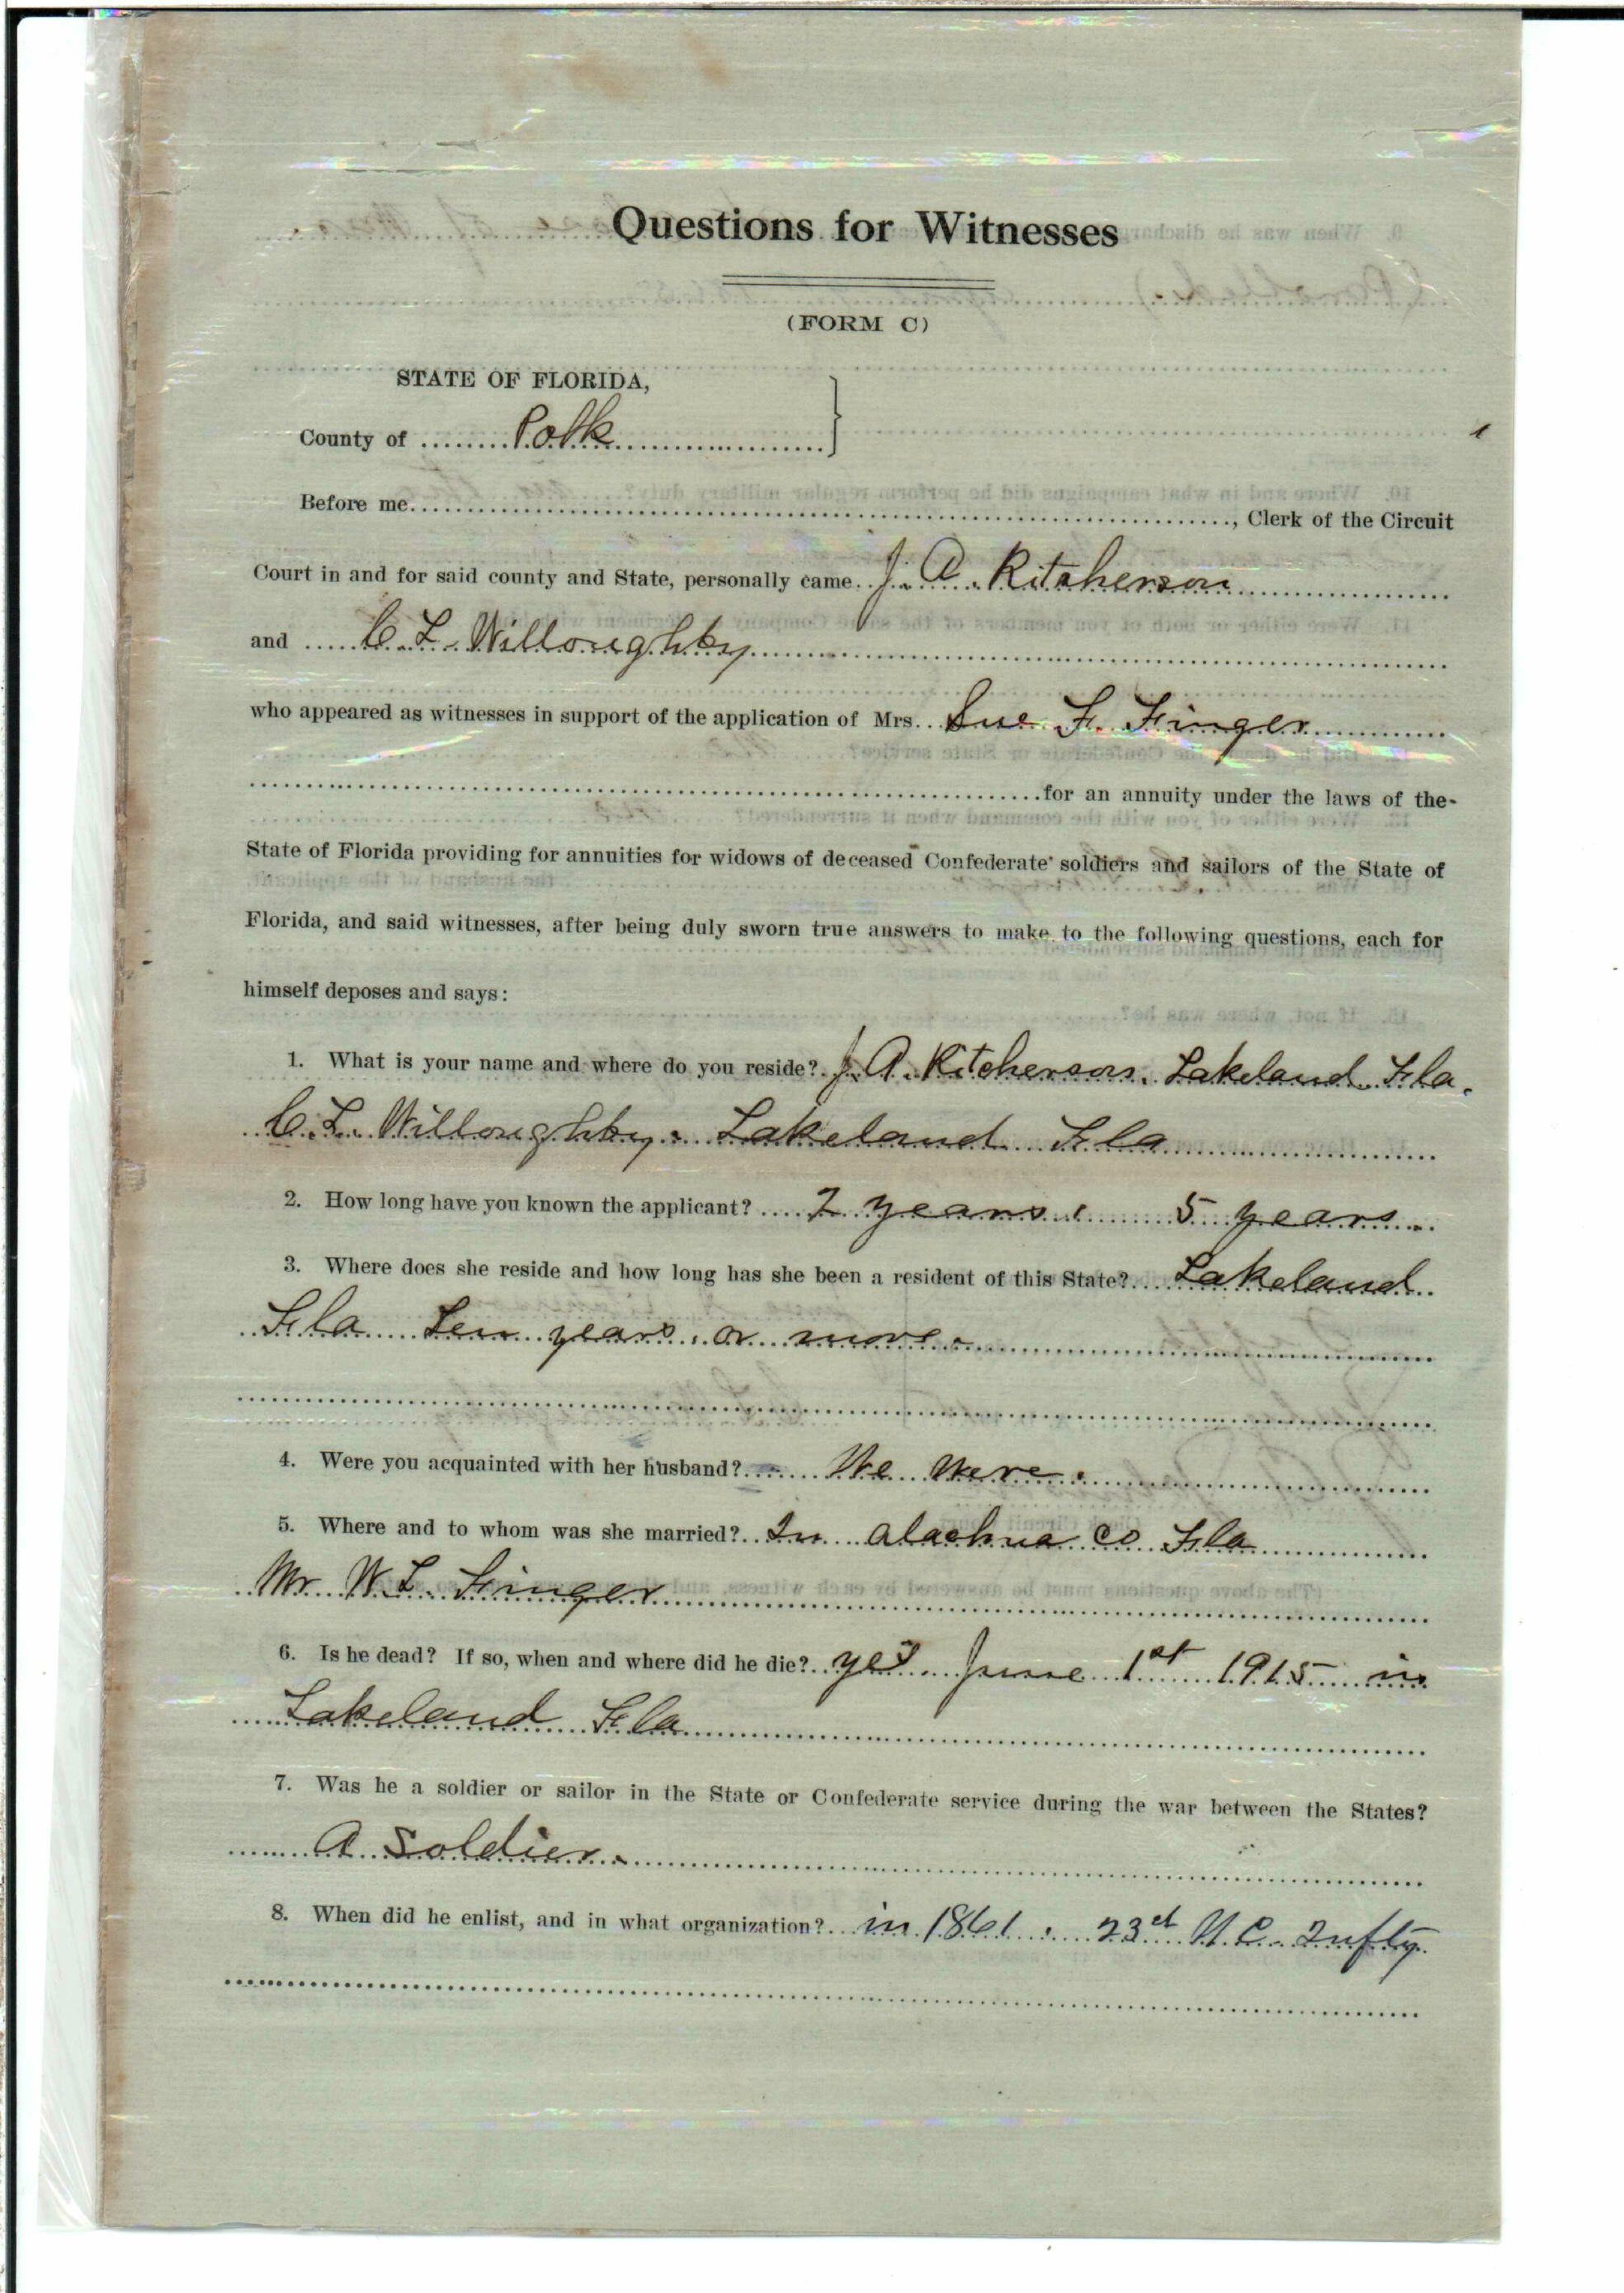 Questions for Witnesses
(FORM C)
STATE OF FLORIDA,
County of Polk
Before me, Clerk of the Circuit
Court in and for said county and State, personally came J. A. Kitcherson
and C. L. Willoughby
who appeared as witnesses in support of the application of Mrs. Sue F. Finger
for an annuity under the laws of the
State of Florida providing for annuities for widows of deceased Confederate soldiers and sailors of the State of
Florida, and said witnesses, after being duly sworn true answers to make to the following questions, each for
himself deposes and says:
1. What is your name and where do you reside? J. A. Kitcherson. Lakeland Fla.
C. L. Willoughby. Lakeland Fla
2. How long have you known the applicant? 2 years, 5 years.
3. Where does she reside and how long has she been a resident of this State? Lakeland
Fla Ten years, or more.
4. Were you acquainted with her husband? We were.
5. Where and to whom was she married? In Alachua Co Fla
Mr W. L. Finger
6. Is he dead? If so, when and where did he die? yes June 1st 1915 in
Lakeland Fla
7. Was he a soldier or sailor in the State or Confederate service during the war between the States?
A Soldier.
8. When did he enlist, and in what organization? in 1861. 23rd N.C. Infty